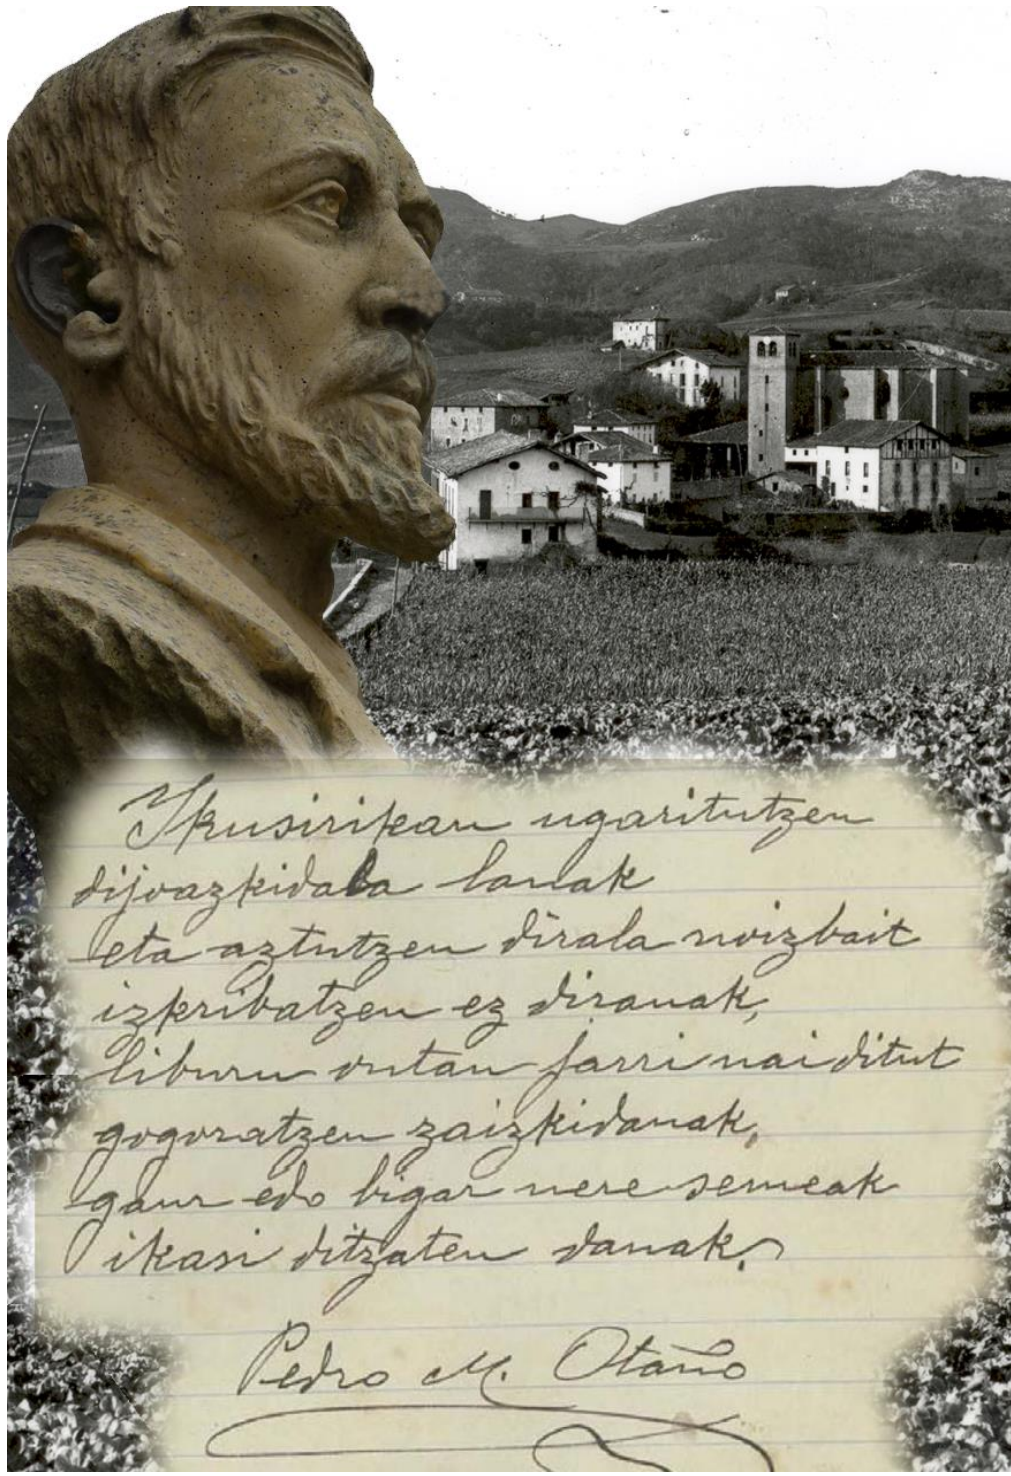 Ikusirikan ugaritutzen
dijoazkidala lanak
eta aztutzen dirala noizbait
izkribatzen ez diranak,
liburu ontan jarri nai ditut
gogoratzen zaizkidanak,
gaur edo bigar nere semeak
ikasi ditzaten danak.
Pedro M. Otaño